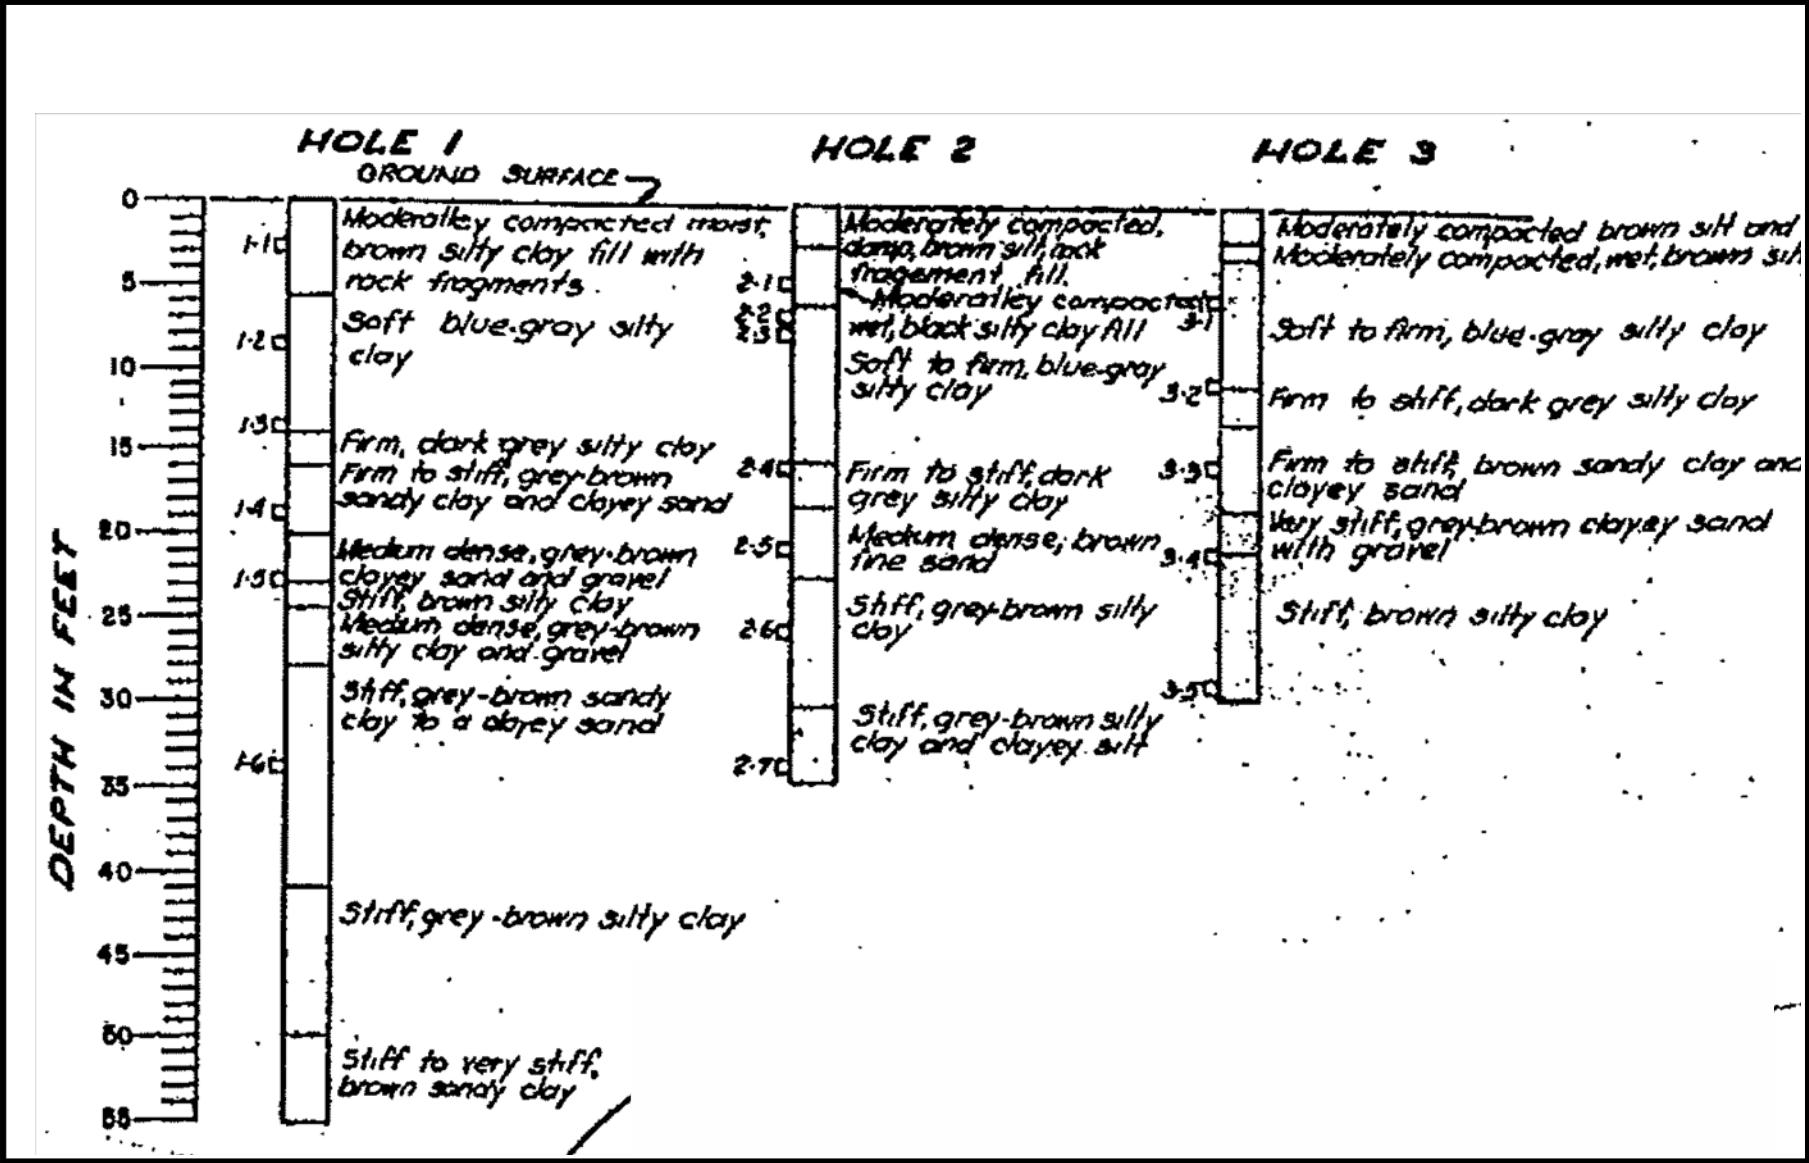 HOLE 1
GROUND SURFACE
Moderatley compacted moist,
brown silty clay fill with
rock fragments.
Soft blue-gray silty
clay
Firm, dark grey silty clay
Firm to stiff, grey-brown
sandy clay and clayey sand
Medium dense, grey-brown
clayey sand and gravel
Stiff, brown silty clay
Medium dense, grey-brown
silty clay and gravel
Stiff, grey-brown sandy
clay to a clayey sand
Stiff, grey-brown silty clay
Stiff to very stiff,
brown sandy clay
1-1
1-2
1-3
1-4
1-5
1-6
HOLE 2
Moderately compacted,
damp, brown silt, rock
fragement fill.
Moderatley compacted
wet, black silty clay fill
Soft to firm, blue-gray
silty clay
Firm to stiff, dark
grey silty clay
Medium dense, brown
fine sand
Stiff, grey-brown silty
clay
Stiff, grey-brown silty
clay and clayey silt
2-1
2-2
2-3
2-4
2-5
2-6
2-7
HOLE 3
Moderately compacted brown silt and
Moderately compacted, wet, brown
Soft to firm, blue-gray silty clay
Firm to stiff, dark grey silty clay
Firm to stiff, brown sandy clay and
clayey sand
Very stiff, grey-brown clayey sand
with gravel
Stiff, brown silty clay
3-1
3-2
3-3
3-4
3-5
DEPTH IN FEET
0
5
10
15
20
25
30
35
40
45
50
55